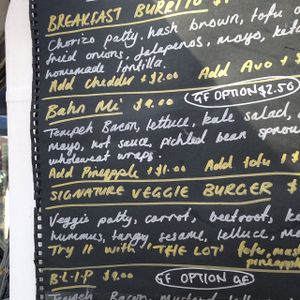 BREAKFAST BURRITO $
Chorizo patty, hash brown, tofu o
fried onions, Jalapenos, mayo, ket
homemade tortilla.
Add cheddar + $2.00 Add Avo + $
Bahn Mi' $9.00 GF OPTION $2.50
Tempeh Bacon, lettuce, kale salad, c
mayo, hot sauce, pickled bean sprou
wholewheat wraps.
Add Pineapple + $1.00 Add tofu + $
SIGNATURE VEGGIE BURGER $
Veggie patty, carrot, beetroot, k
hummus, tangy sesame, lettuce, ma
Try it with 'THE LOT' tofu, mas
pineapple
B-L-I-P $9.00 GF OPTION
Tempeh Bacon, mustard